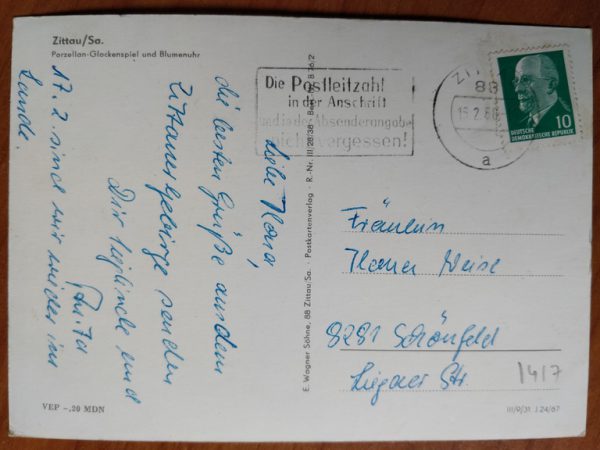 Zittau/Sa.
Porzellan-Glockenspiel und Blumenuhr
Die Postleitzahl
in der Anschrift
und in der Absenderangabe
nicht vergessen!
88
15.2.6
a
10
DEUTSCHE
DEMOKRATISCHE REPUBLIK
Liebe
die besten Grüße aus dem
Zittauer Gebirge senden
Dir Sieglinde und
Anita
17. 2. sind wir wieder im
Lande.
Fräulein
Weise
8281 Schönfeld
Str.
1417
E. Wagner Söhne, 88 Zittau/Sa. · Postkartenverlag · R.-Nr. III/28/38 · Best.-Nr. B 36/2
VEP -,20 MDN
III/9/31 J 24/67